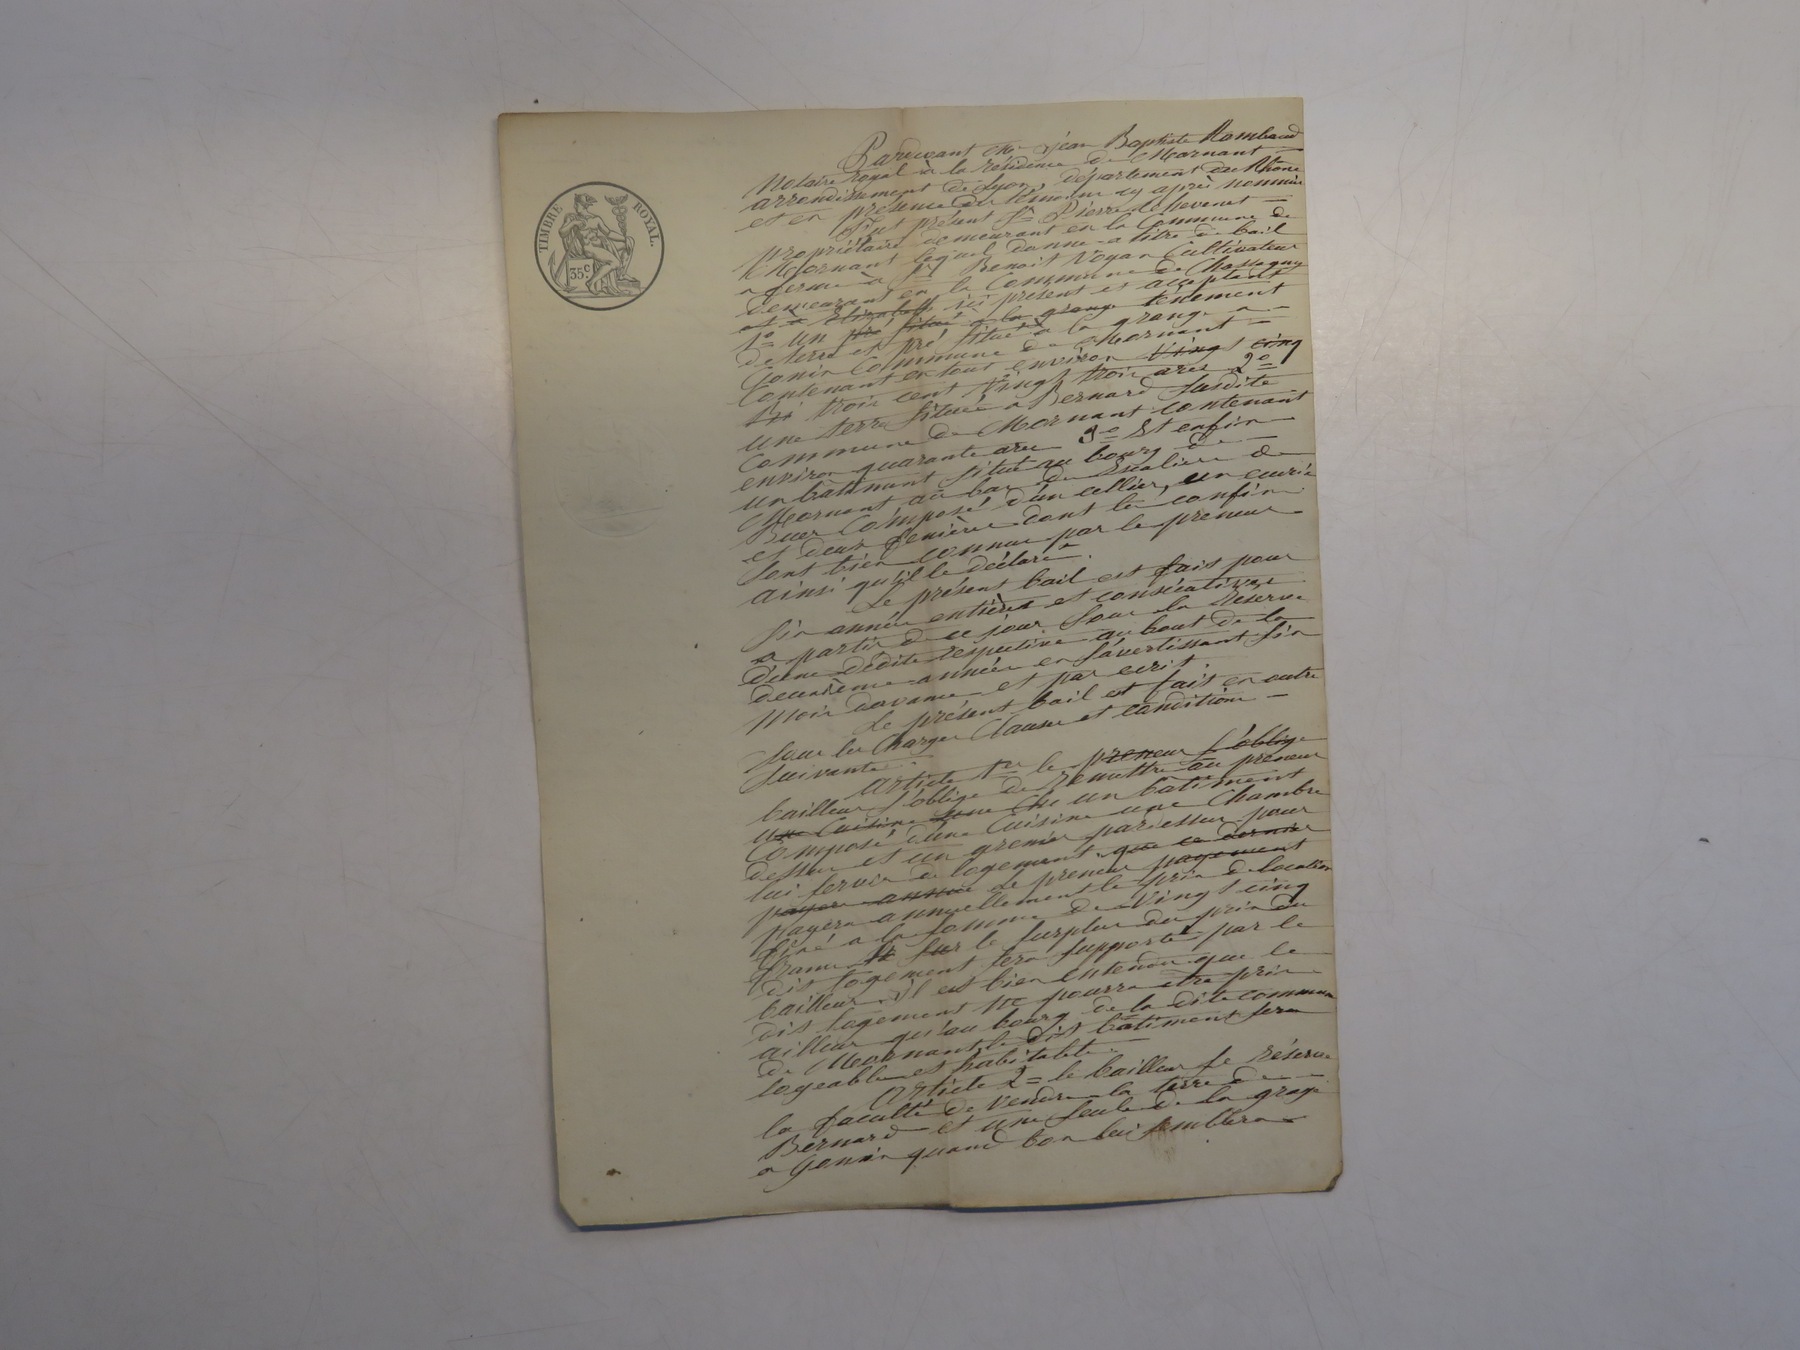 TIMBRE ROYAL.
35 c.
Pardevant Me jéan Baptiste Rambaud
Notaire royal à la résidence de Mornant
arrondissement de Lyon, département du Rhône
et en présence des témoins cy après nommés
fut présent Sr Pierre
propriétaire demeurant en la Commune de
Mornant lequel donne a titre de bail
a ferme à Sr Benoit Voyan Cultivateur
demeurant en la Commune de Chassagny
ici présent et acceptant
1o un pré situé à la grange tènement
de terre et pré situé à la grange a
Gonin Commune de Mornant
Contenant en tout environ vingt cinq
trois cent vingt trois ares 2o
une terre située a Bernard susdite
commune de Mornant contenant
environ quarante ares 3o Et enfin
un bâtiment situé au bourg de
Mornant au bas du Escalier de
Buer Composé d'un cellier, un ecurie
et deux fenière dont les confins
sont bien connus par le preneur
ainsi qu'il le déclare.
Le présent bail est fait pour
six année entières et consécutives
a partir de ce jour sous la réserve
d'une dédite respective au bout de la
deuxième année en s'avertissant six
mois davance et par ecrit.
Le présent bail est fait en outre
sous les Charges Clauses et conditions
suivantes :
Article 1er le preneur s'oblige
bailleur s'oblige de remettre au preneur
une Cuisine un bâtiment
Composé d'une Cuisine une Chambre
dessus et un grenier pardessus pour
lui servir de logement que ce dernier
payera année le preneur payement
payera annuellement le prix de location
fixé a la somme de vingt cinq
francs sur le surplus du prix du
dit logement sera supporté par le
bailleur, il est bien entendu que le
dit logement ne pourra etre pris
ailleur qu'au bourg de la dite commune
de Mornant, le dit bâtiment sera
logeable et habitable.
Article 2= le bailleur se réserve
la faculté de vendre la terre de
Bernard et une seule de la grange
a Gonin quand bon lui semblera